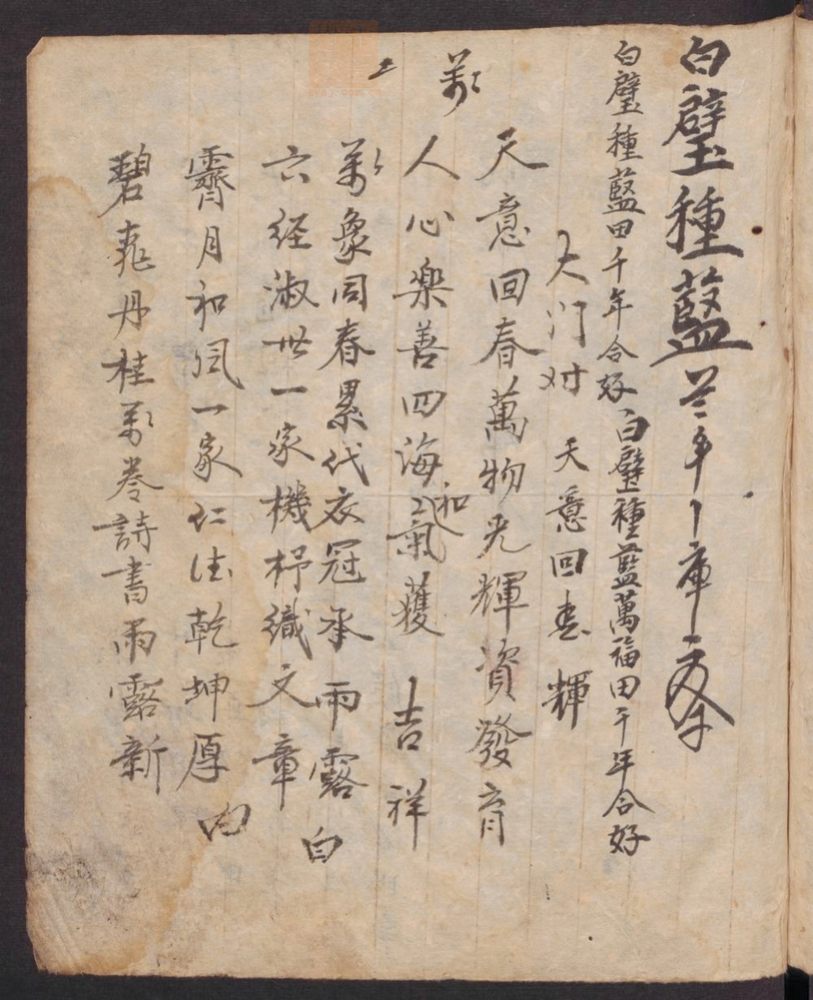 白璧種藍
白璧種藍田千年合好白璧種藍萬福田千年合好
大门对 天意回春輝
天意回春萬物光輝資發育
萬
人心樂善四海和氣獲吉祥
萬象同春累代衣冠承雨露白
六经淑世一家機杼織文章
霽月和風一家仁法乾坤厚内
碧桃丹桂萬卷詩書雨露新